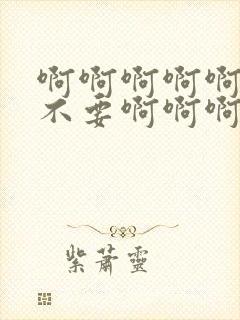 啊啊啊啊啊
不要啊啊啊
紫萧靈